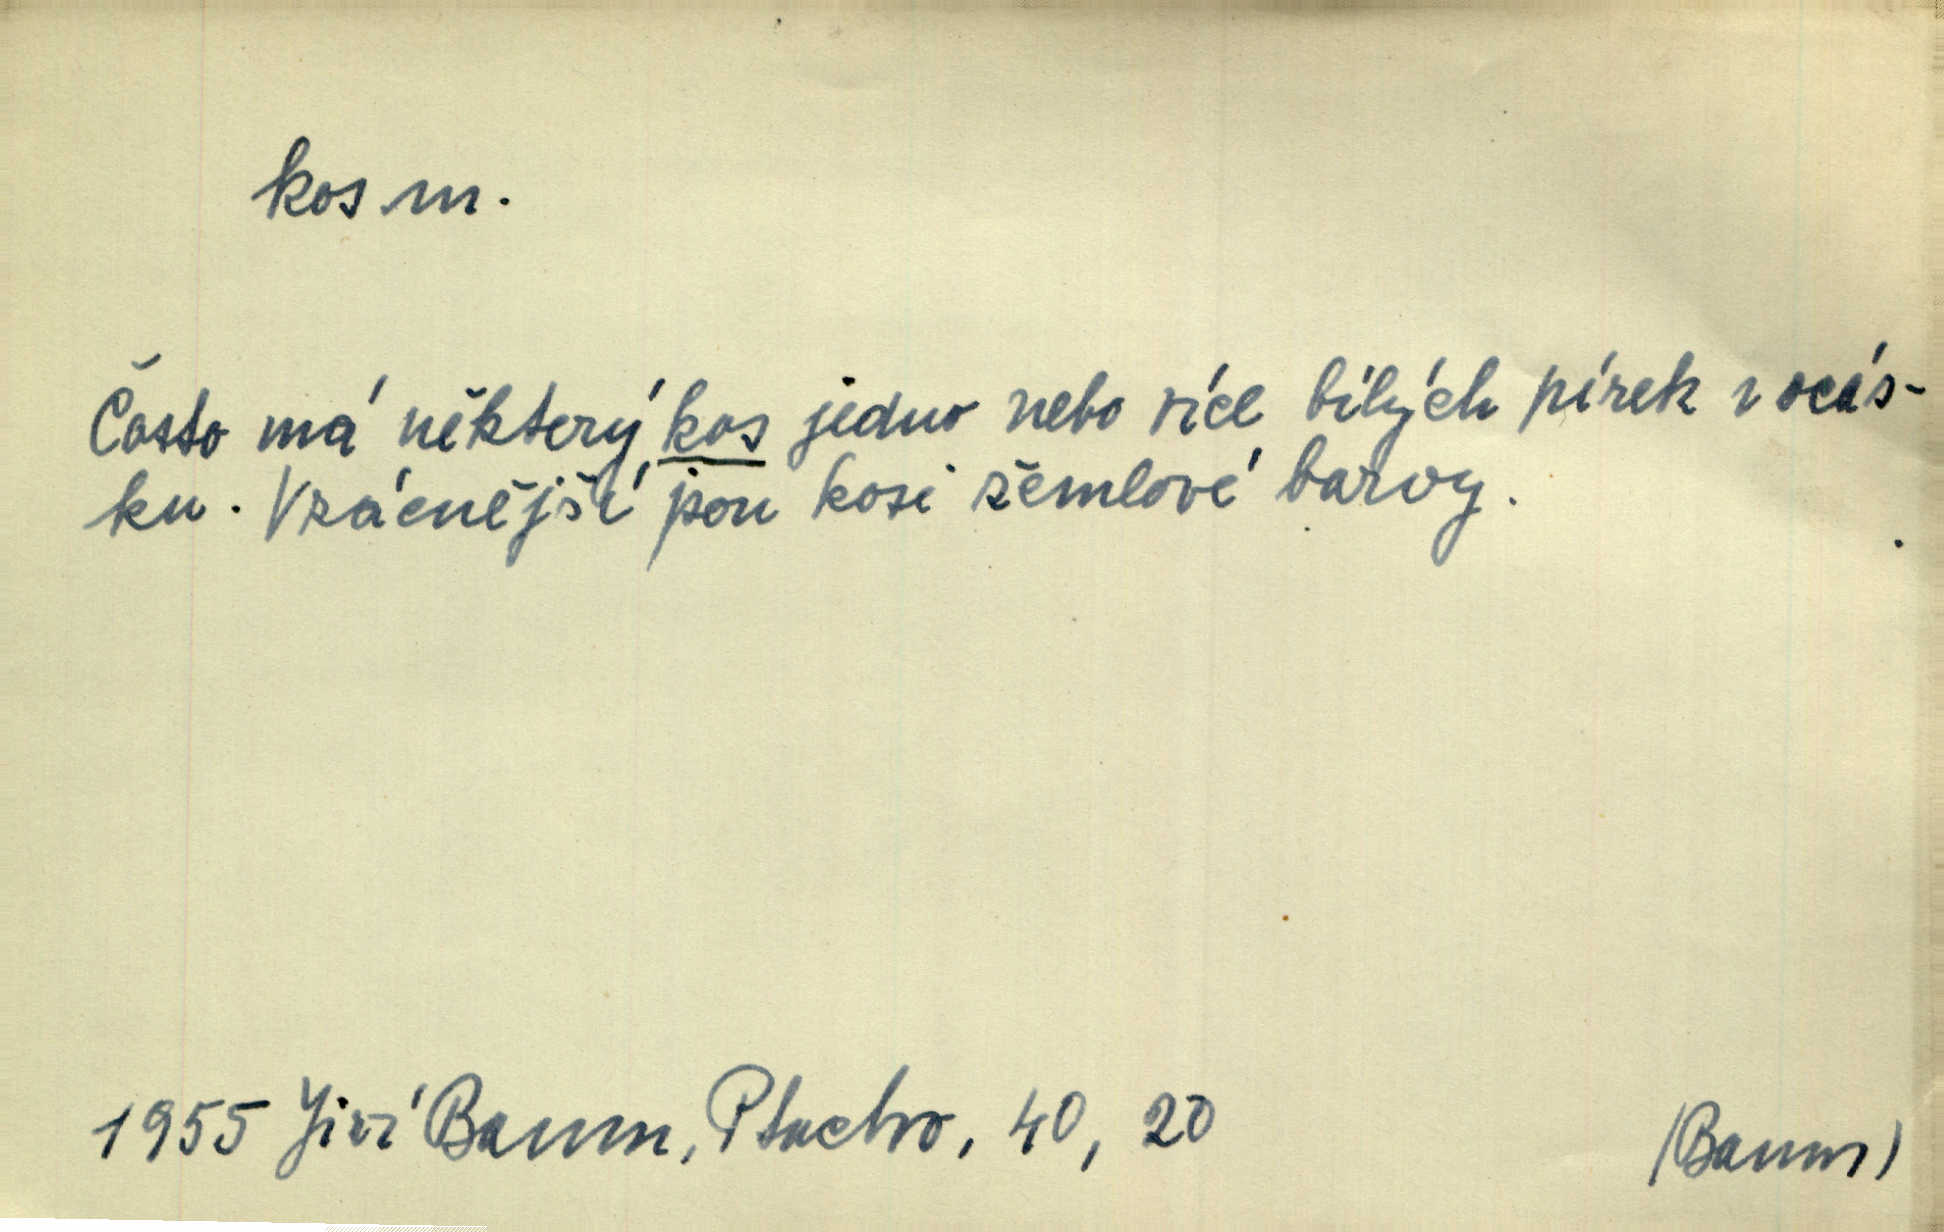 kos m.
Často má některý kos jedno nebo více bílých pírek v ocás-
ku. Vzácnější jsou kosi žemlové barvy.
1955 Jiří Baum, Ptactvo, 40, 20
(Baum)